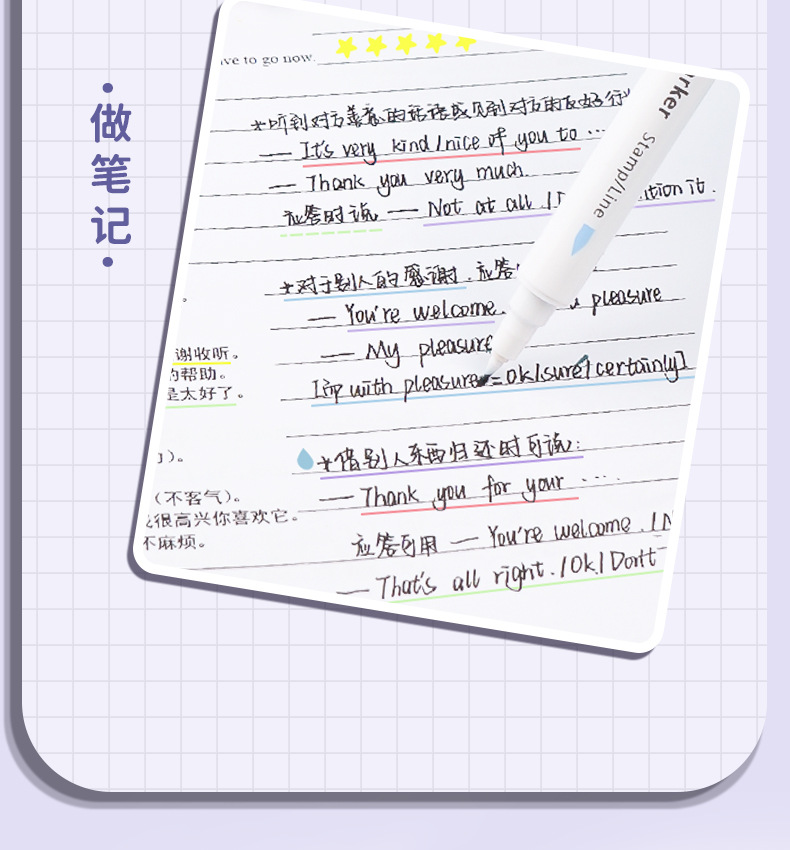 做笔记
ive to go now.
*听到对方善意的话语或见到对方的友好行
— It's very kind/nice of you to ...
— Thank you very much.
应答时说 — Not at all / D ition it.
*对于别人的感谢.应答
— You're welcome. pleasure
— My pleasure
[即 with pleasure = ok/sure/certainly]
*借别人东西归还时可说:
— Thank you for your ....
应答可用 — You're welcome. / N
— That's all right. / Ok / Don't
谢收听。
的帮助。
是太好了。
)。
(不客气)。
很高兴你喜欢它。
不麻烦。
arker
Stamp/Line